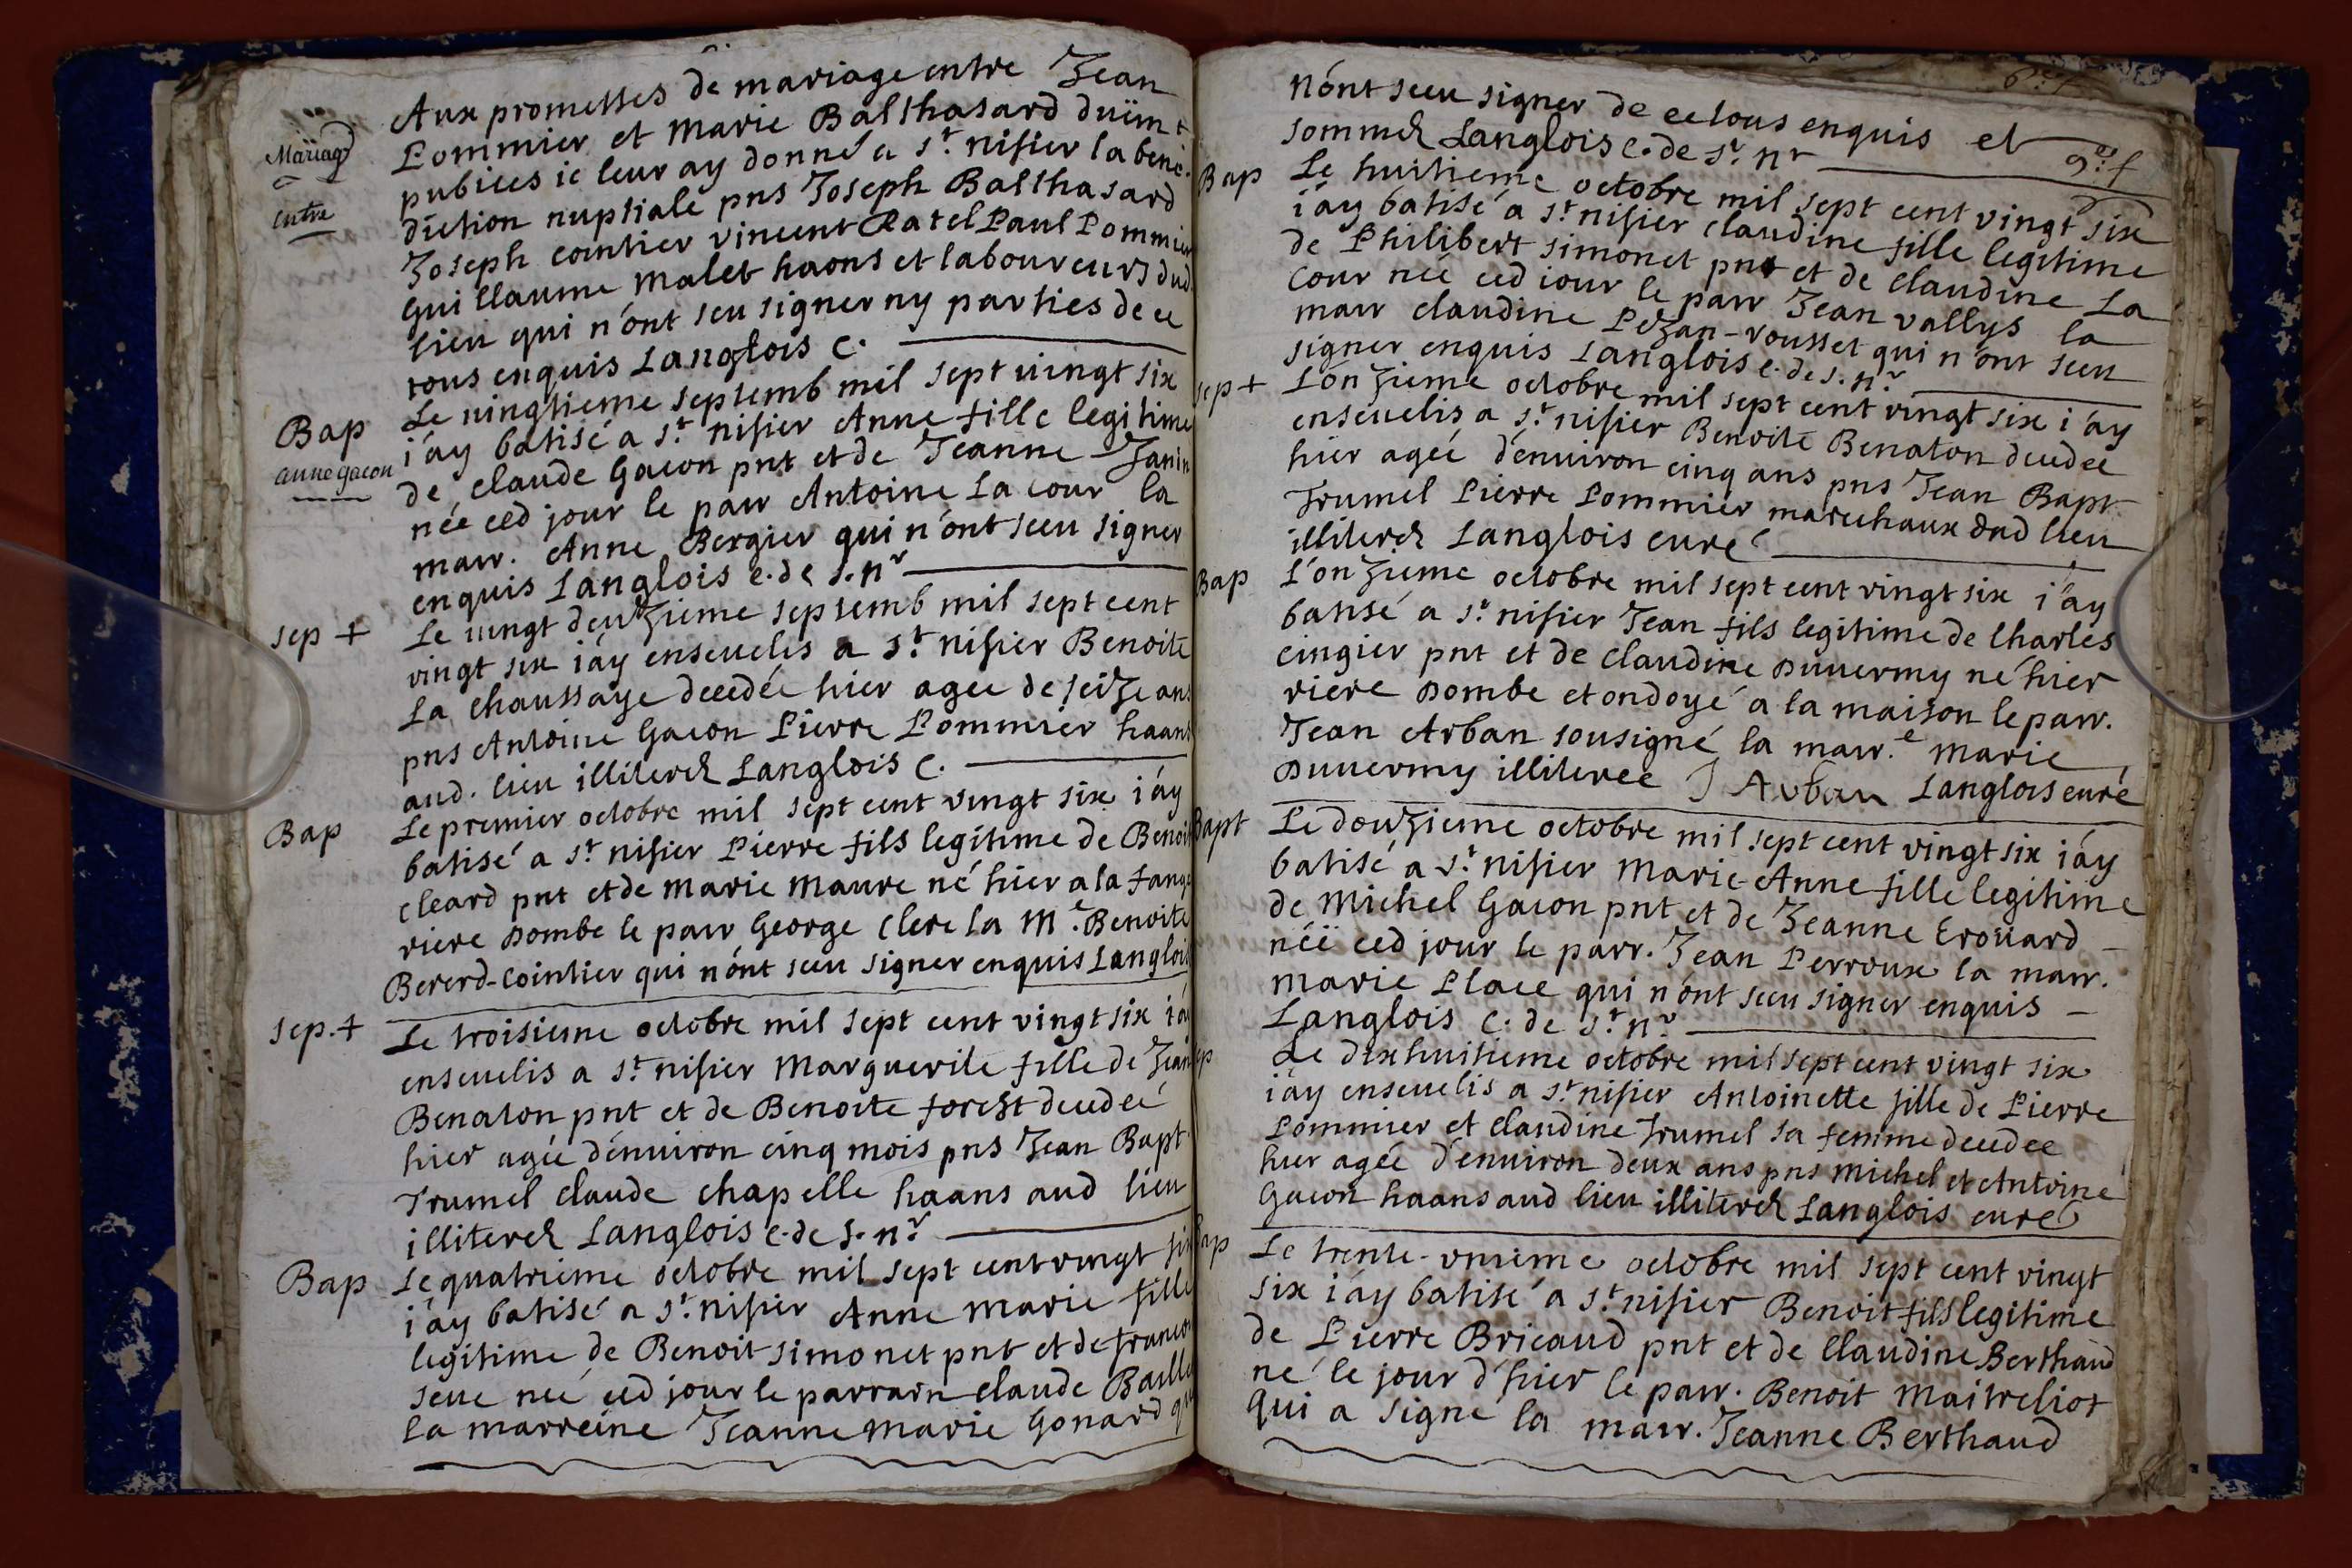 Aux promesses de mariage entre Jean
Mariage
Pommier et Marie Balthasard duëm.t
pubiees ie leur ay donné a s.t nisier la bene-
entre
diction nuptiale pns Joseph Balthasard
Joseph cointier vincent Ratel Paul Pommier
guillaume Malet haans et laboureurs dud
lieu qui n'ont seu signer ny parties de ce
tous enquis Langlois C.
Bap
Le vingtieme septemb mil sept vingt six
i'ay batisé a s.t nisier Anne fille legitime
anne gacon
de claude Gacon pnt et de Jeanne Janin
née ced jour le parr Antoine La cour la
marr. Anne Bergier qui n'ont sceu signer
enquis Langlois c. de s. n.r
sep +
Le vingt deuzieme septemb mil sept cent
vingt six i'ay enseuelis a s.t nisier Benoite
La chaussaye decedée hier agee de seize ans
pns Antoine Gacon Pierre Pommier haans
aud. lieu illiterez Langlois C.
Bap
Le premier octobre mil sept cent vingt six i'ay
batisé a s.t nisier Pierre fils legitime de Benoit
cleard pnt et de Marie Maure né hier a la fange
riere Dombe le parr George Clerc la M.e Benoite
Bererd-cointier qui n'ont sceu signer enquis Langlois
sep. +
Le troisieme octobre mil sept cent vingt six i'ay
enseuelis a s.t nisier Marguerite fille de Jean
Benaton pnt et de Benoite forest decedeé
hier agée d'enuiron cinq mois pns Jean Bapt
Trumel claude chapelle haans aud lieu
illiterez Langlois c. de s. n.r
Bap
Le quatrieme octobre mil sept cent vingt six
i'ay batisé a s.t nisier Anne Marie fille
legitime de Benoit simonet pnt et de francoi
seue neé ced jour le parrain claude Baille
La marreine Jeanne Marie Gonard qui
n'ont sceu signer de ce tous enquis et
sommez Langlois c. de s.t n.r
9.e f
Bap
Le huitieme octobre mil sept cent vingt six
i'ay batisé a s.t nisier claudine fille legitime
de Philibert simonet pnt et de claudine La
cour neé ced iour le parr Jean vallys la
marr claudine Pezan-rousset qui n'ont sceu
signer enquis Langlois c. de s. n.r
sep +
L'onzieme octobre mil sept cent vingt six i'ay
enseuelis a s.t nisier Benoite Benaton decedee
hier ageé d'enuiron cinq ans pns Jean Bapt
Trumel Pierre Pommier marechaux dud lieu
illiterez Langlois curé
Bap
L'onzieme octobre mil sept cent vingt six i'ay
batisé a s.t nisier Jean fils legitime de Charles
cingier pnt et de claudine Duuermy né hier
riere Dombe et ondoyé a la maison le parr.
Jean Arban sousigné la marr.e Marie
Duuermy illiteree J Arban Langlois curé
Bapt
Le douzieme octobre mil sept cent vingt six i'ay
batisé a s.t nisier Marie-Anne fille legitime
de Michel Gacon pnt et de Jeanne Eroüard
néë ced jour le parr. Jean Perroux la marr.
Marie Place qui n'ont sceu signer enquis
Langlois c. de s.t n.r
sep
Le dixhuitieme octobre mil sept cent vingt six
i'ay enseuelis a s.t nisier Antoinette fille de Pierre
Pommier et claudine Trumel sa femme decedee
hier agée d'enuiron deux ans pns Michel et Antoine
Gacon haans aud lieu illiterez Langlois curé
Bap
Le trente-unieme octobre mil sept cent vingt
six i'ay batisé a s.t nisier Benoit fils legitime
de Pierre Bricaud pnt et de Claudine Berthaud
né le jour d'hier le parr. Benoit Maitreliot
qui a signé la marr. Jeanne Berthaud